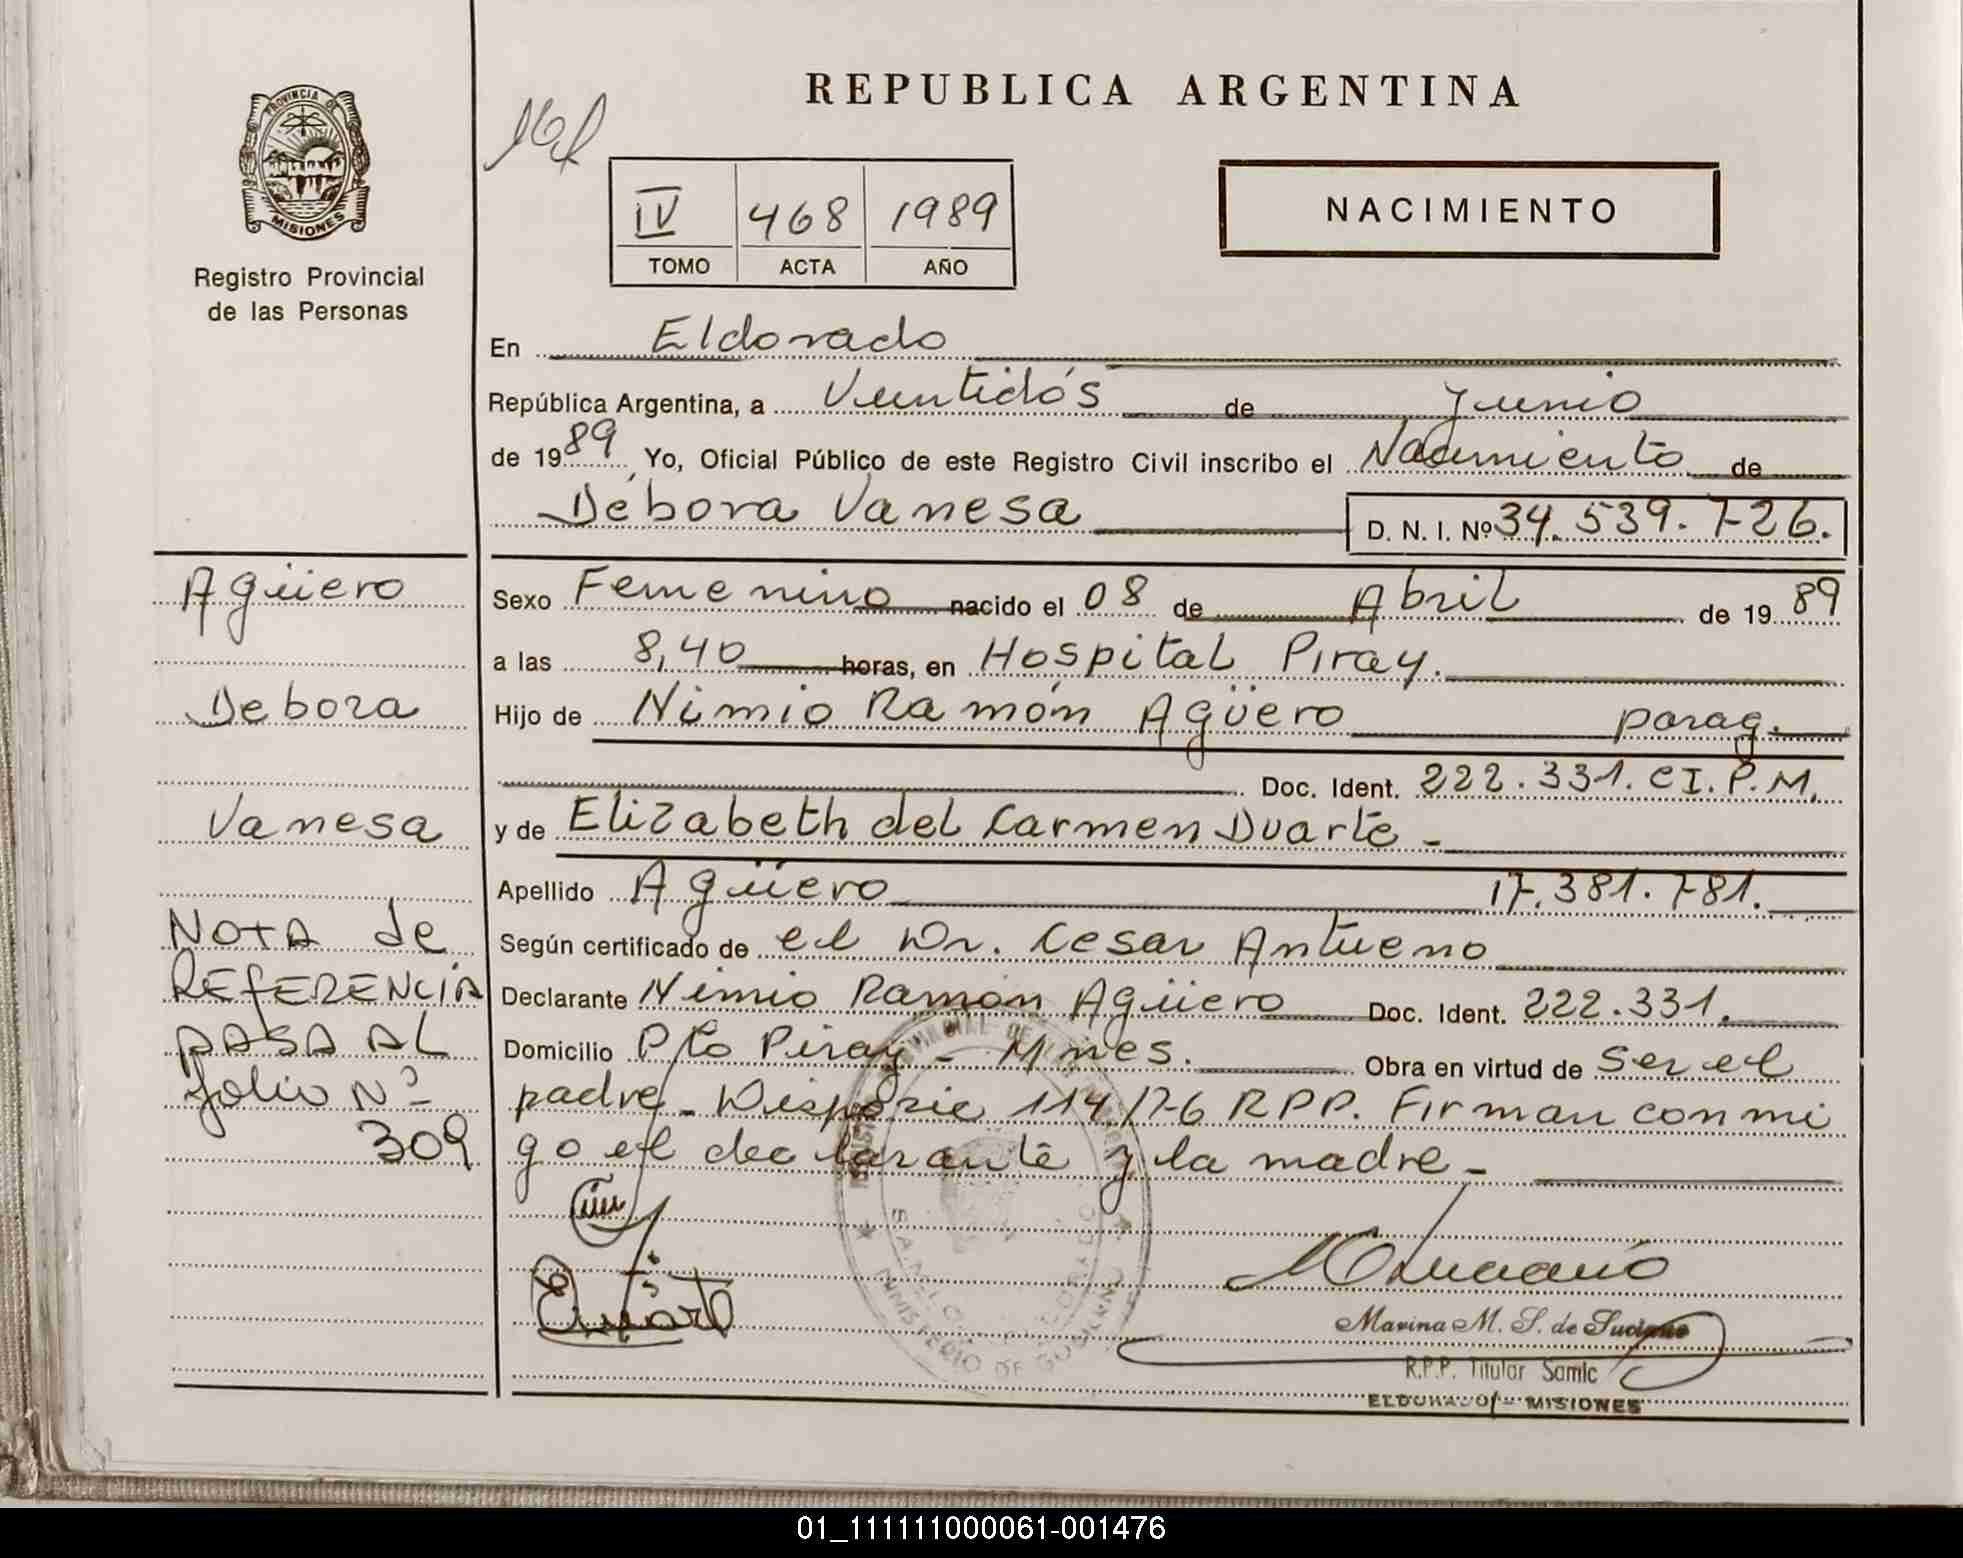 REPUBLICA ARGENTINA
PROVINCIA DE
MISIONES
Registro Provincial
de las Personas
IV 468 1989
TOMO ACTA AÑO
NACIMIENTO
En Eldorado
República Argentina, a Veintidós de Junio
de 1989 Yo, Oficial Público de este Registro Civil inscribo el Nacimiento de
Débora Vanesa D. N. I. Nº 34.539.726.
Agüero
Debora
Vanesa
NOTA de
REFERENCIA
PASA AL
folio Nº
309
Sexo Femenino nacido el 08 de Abril de 1989
a las 8,40 horas, en Hospital Piray.
Hijo de Nimio Ramón Agüero parag.
Doc. Ident. 222.331. CI.P.M.
y de Elizabeth del Carmen Duarte -
Apellido Agüero 17.381.781.
Según certificado de el Dr. Cesar Antueno
Declarante Nimio Ramón Agüero Doc. Ident. 222.331.
Domicilio Pto Piray - Mnes. Obra en virtud de Ser el
padre - Disposic 114/76 RPP. Firman conmi
go el declarante y la madre -
EDuarte
Marina M. S. de Suciano
R.P.P. Titular Samic
ELDORADO - MISIONES
MINISTERIO DE GOBIERNO
01_111111000061-001476